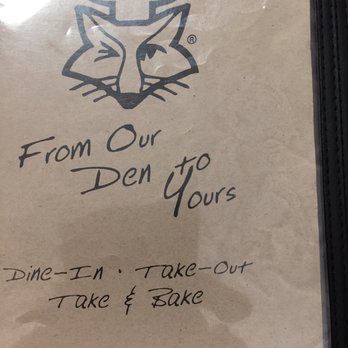 ®
From Our
Den to
Yours
Dine-In · Take-Out
Take & Bake